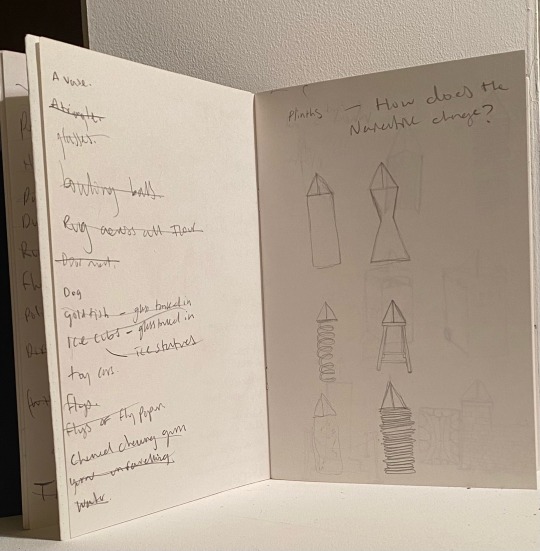 A vase.
glasses.
bowling balls.
Rug across all Floor
Door mat.
Dog
goldfish - glass based in
Ice cubs - glass based in
ice statues
toy cars.
flys.
flys on fly paper.
chewed chewing gum
yarn unravelling
Water.
Plinths - How does the
Narrative change?